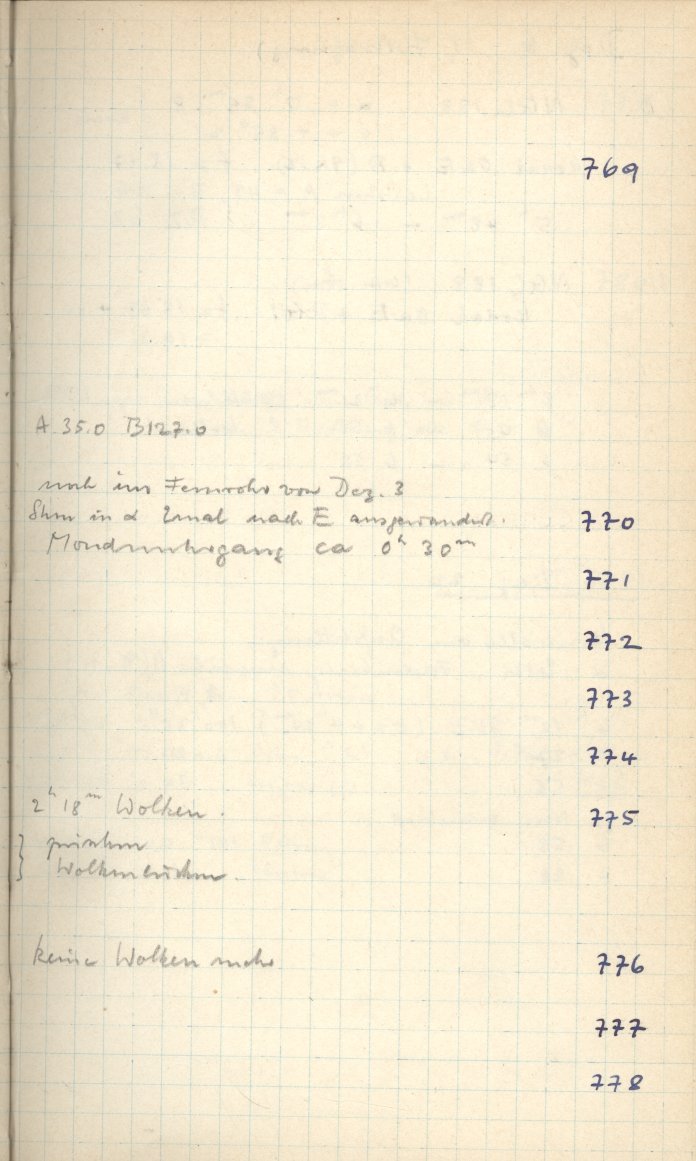 769
A 35.0 B127.0
noch im Fernrohr von Dez. 3
in α 2mal nach E ausgewandert. 770
Monduntergang ca 0ʰ 30ᵐ
771
772
773
774
2ʰ 18ᵐ Wolken. 775
} zwischen
Wolkenlücken.
keine Wolken mehr 776
777
778